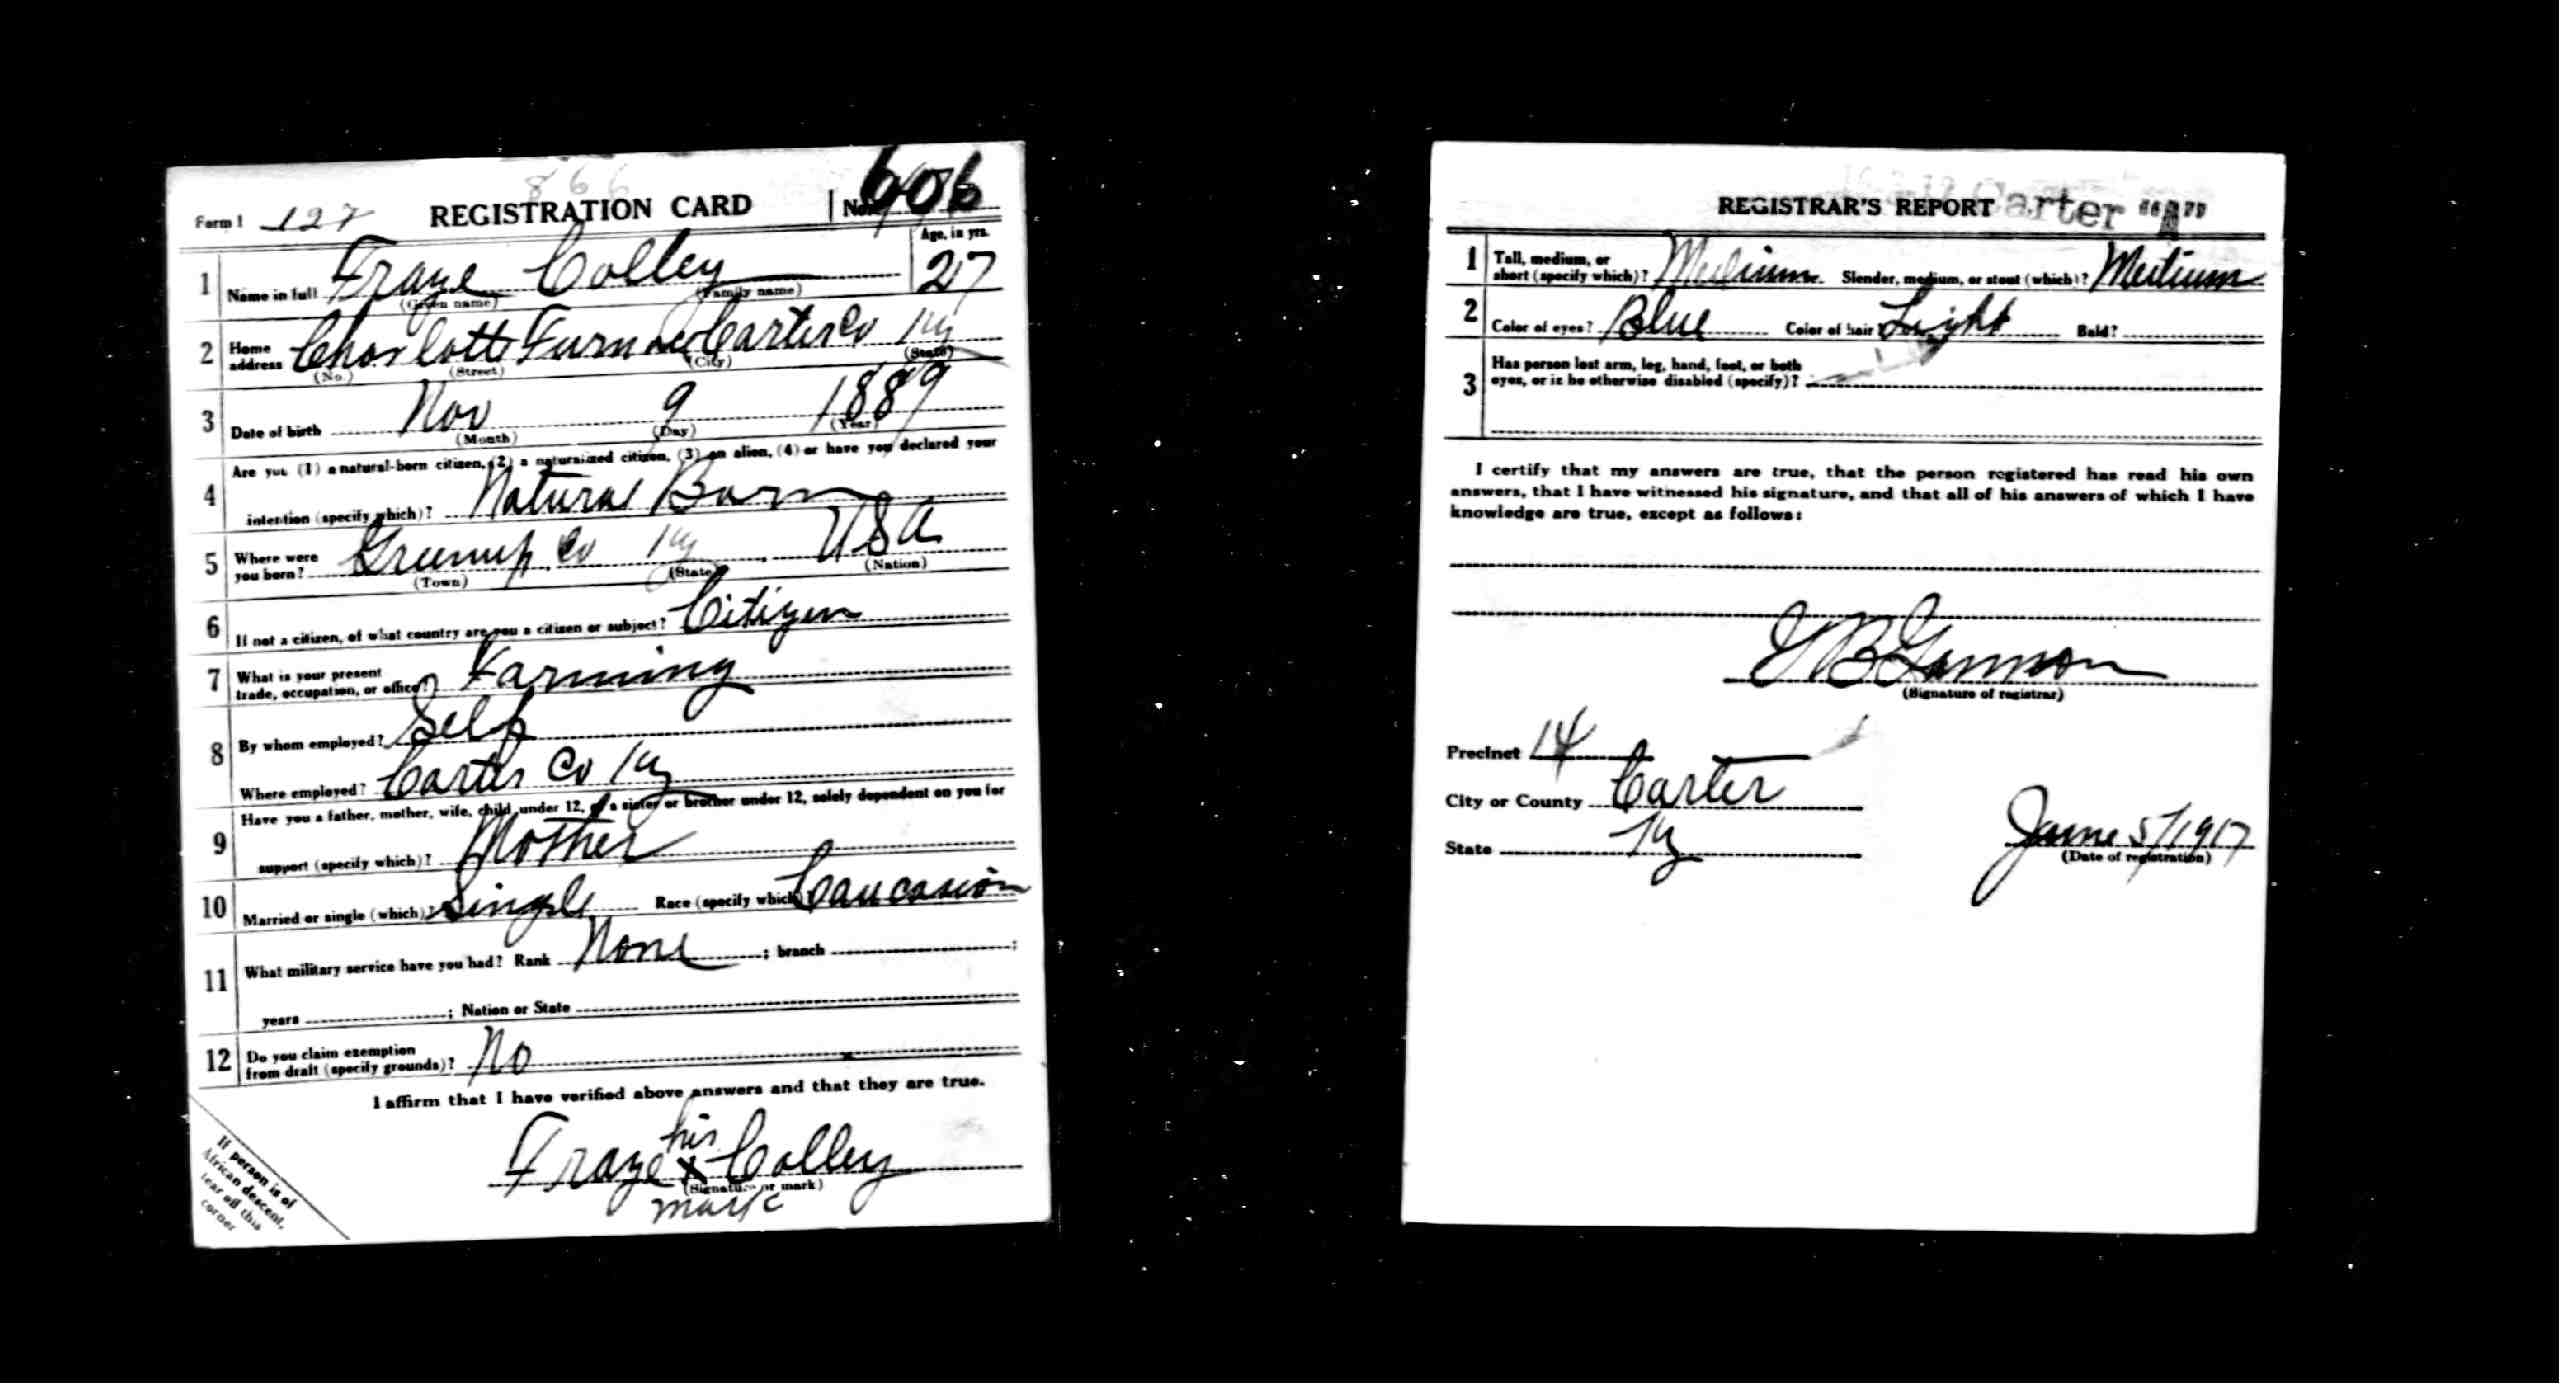 866
Form 1 127 REGISTRATION CARD No. 606
Age, in yrs.
1 Name in full Fraze Colley 27
(Given name) (Family name)
2 Home address Charlott Furnace Carter Co Ky
(No.) (Street) (City) (State)
3 Date of birth Nov 9 1889
(Month) (Day) (Year)
Are you (1) a natural-born citizen, (2) a naturalized citizen, (3) an alien, (4) or have you declared your
4 intention (specify which)? Natural Born
5 Where were you born? Greenup Co Ky USA
(Town) (State) (Nation)
6 If not a citizen, of what country are you a citizen or subject? Citizen
7 What is your present trade, occupation, or office? Farming
8 By whom employed? Self
Where employed? Carter Co Ky
Have you a father, mother, wife, child under 12, or a sister or brother under 12, solely dependent on you for
9 support (specify which)? Mother
10 Married or single (which)? Single Race (specify which)? Caucasion
11 What military service have you had? Rank None ; branch ;
years ; Nation or State
12 Do you claim exemption from draft (specify grounds)? No
I affirm that I have verified above answers and that they are true.
his
Fraze X Colley
(Signature or mark)
mark
If person is of
African descent,
tear off this
corner
REGISTRAR'S REPORT Carter "A"
1 Tall, medium, or short (specify which)? Medium Slender, medium, or stout (which)? Medium
2 Color of eyes? Blue Color of hair? Light Bald?
3 Has person lost arm, leg, hand, foot, or both
eyes, or is he otherwise disabled (specify)?
I certify that my answers are true, that the person registered has read his own
answers, that I have witnessed his signature, and that all of his answers of which I have
knowledge are true, except as follows:
B Gammon
(Signature of registrar)
Precinct 14
City or County Carter
State Ky
June 5/1917
(Date of registration)